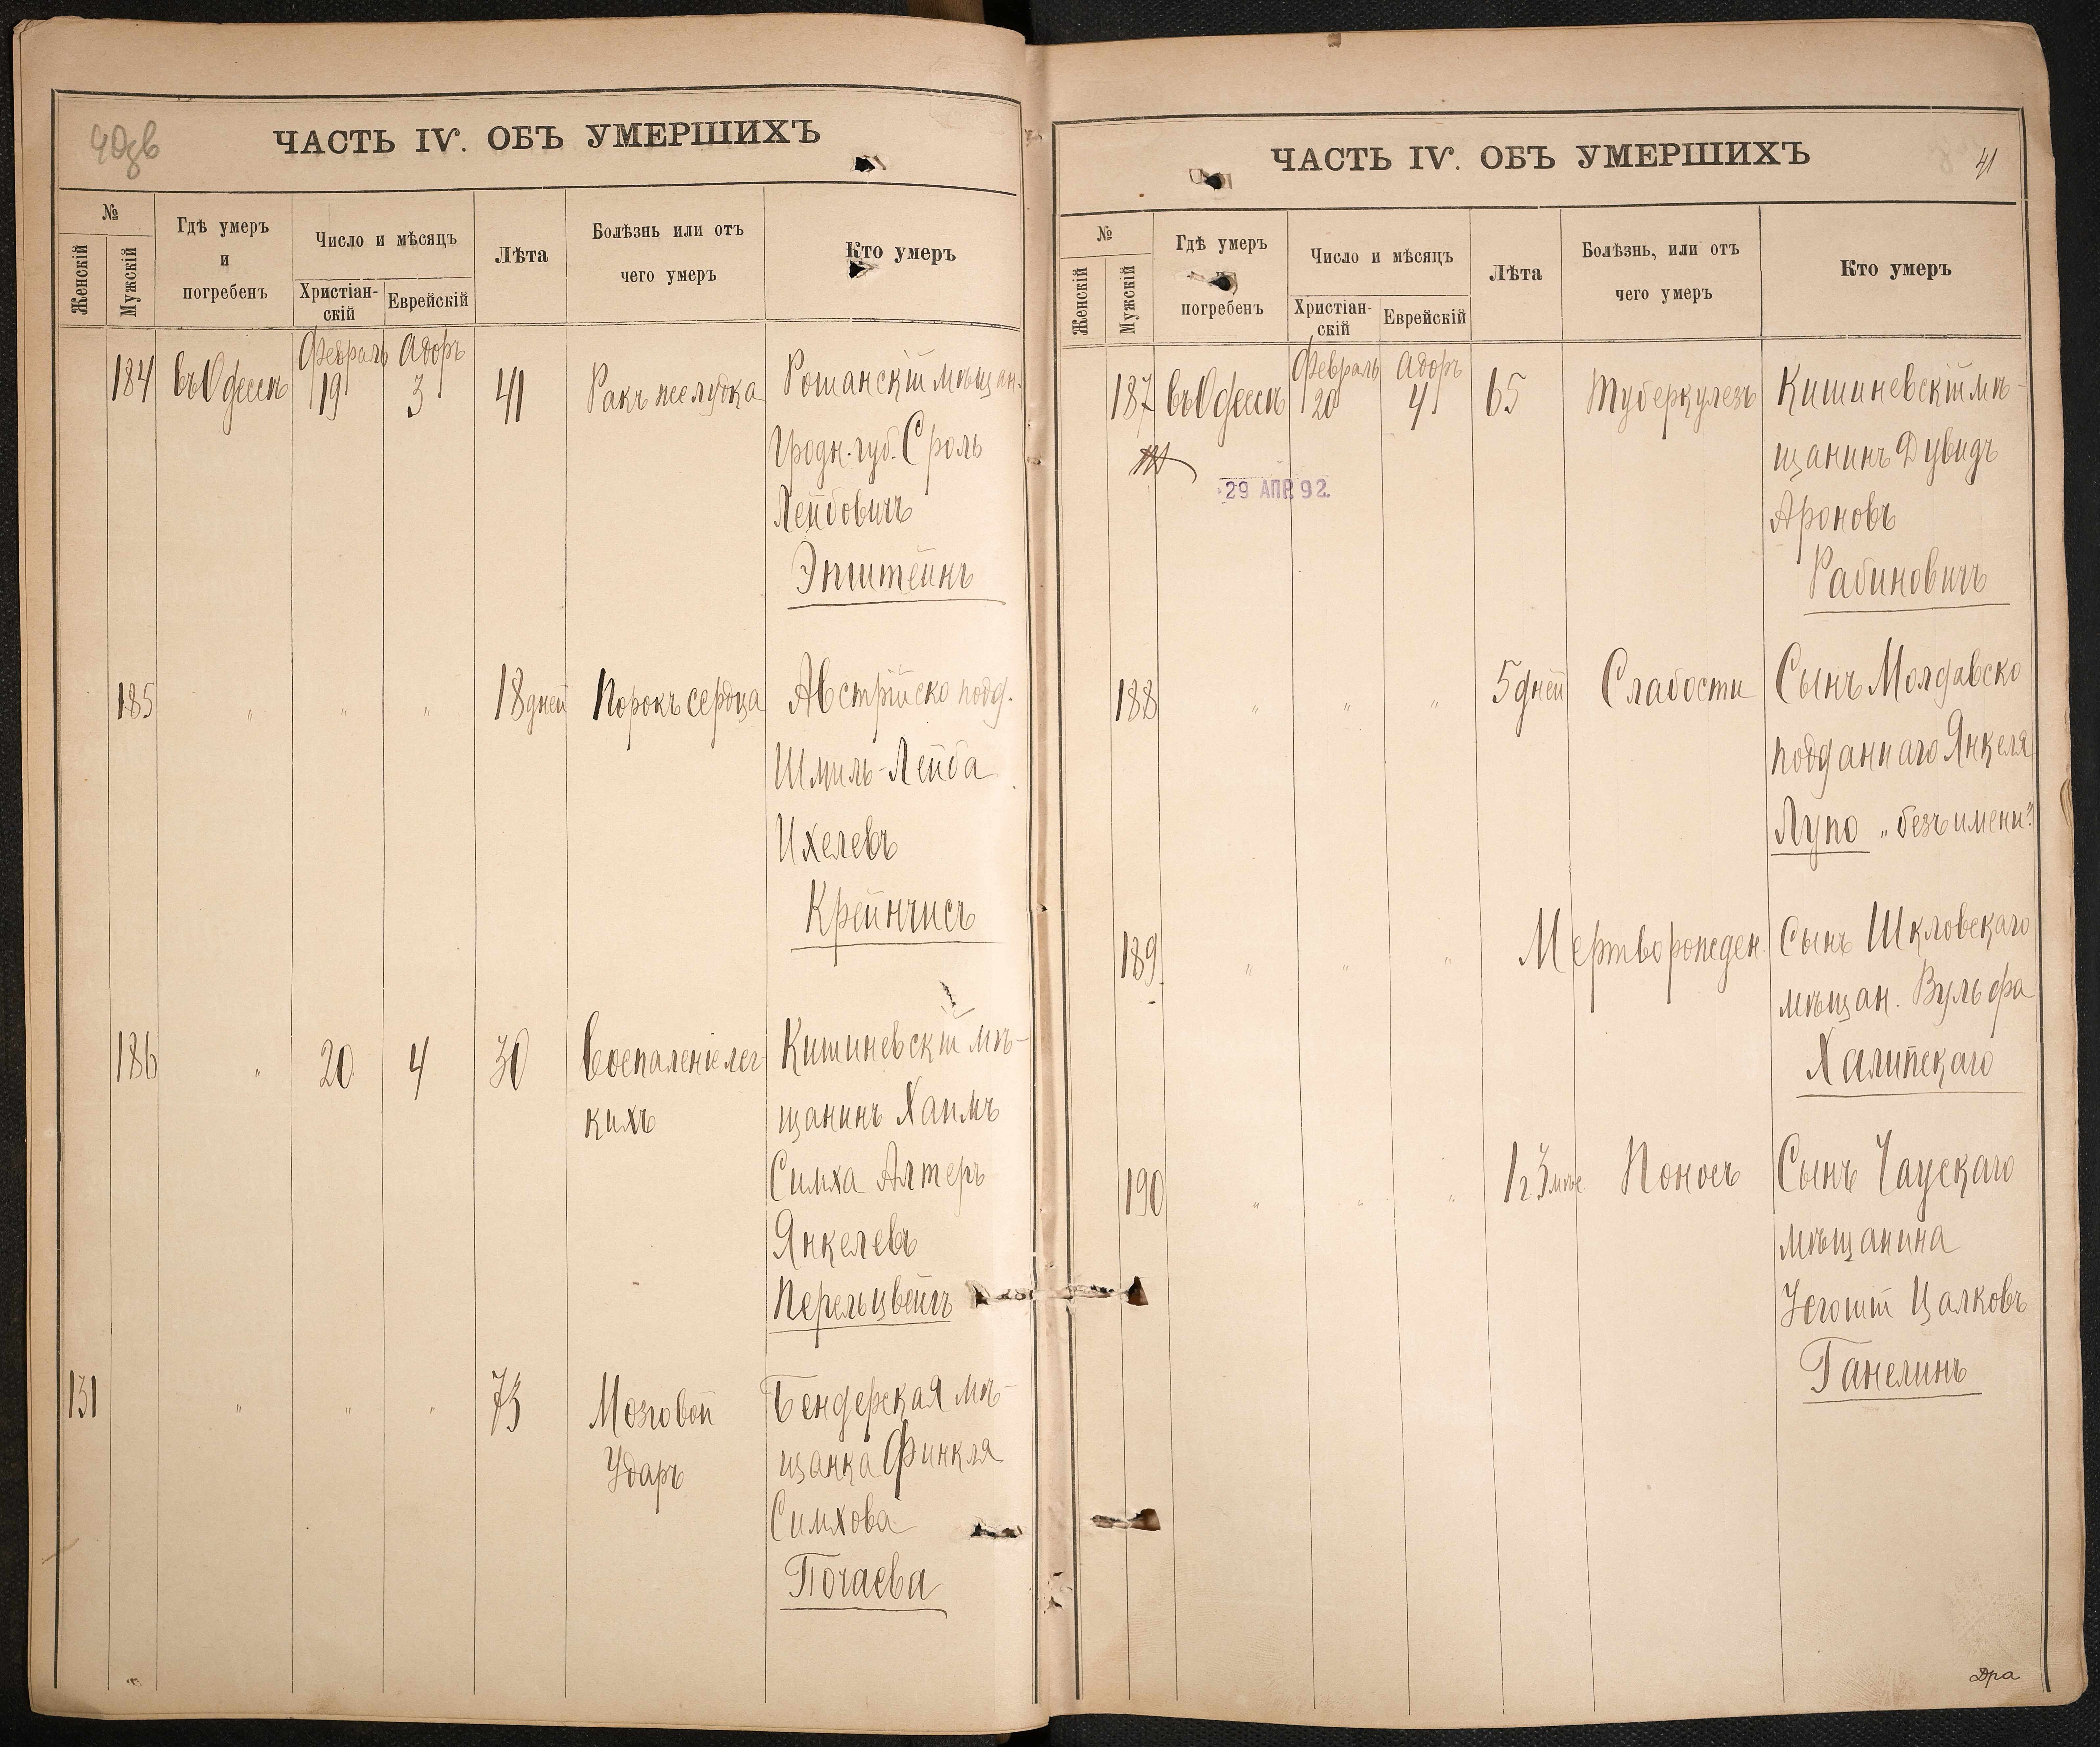 40зв
ЧАСТЬ IV. ОБЪ УМЕРШИХЪ
№
Женскій
Мужскій
Гдѣ умеръ
и
погребенъ
Число и мѣсяцъ
Христіан-
скій
Еврейскій
Лѣта
Болѣзнь или отъ
чего умеръ
Кто умеръ
Февраль Адоръ
184 въ Одессѣ 19 3 41 Ракъ желудка Рошанскій мѣщан.
Гродн. губ. Сроль
Лейбовичъ
Эпштейнъ
185 " " " 18 дней Порокъ сердца Австрійско подд.
Шмиль-Лейба
Ихелевъ
Крейнчисъ
186 " 20 4 30 Воспаленіе лег- Кишиневскій мѣ-
кихъ щанинъ Хаимъ
Симха Алтеръ
Янкелевъ
Перельцвейгъ
131 " " " 73 Мозговой Бендерская мѣ-
Ударъ щанка Финкля
Симхова
Почаева
ЧАСТЬ IV. ОБЪ УМЕРШИХЪ
41
№
Женскій
Мужскій
Гдѣ умеръ
и
погребенъ
Число и мѣсяцъ
Христіан-
скій
Еврейскій
Лѣта
Болѣзнь, или отъ
чего умеръ
Кто умеръ
Февраль Адоръ
187 въ Одессѣ 20 4 65 Туберкулезъ Кишиневскій мѣ-
щанинъ Дувидъ
29 АПР. 92.
Ароновъ
Рабиновичъ
188 " " " 5 дней Слабости Сынъ Молдавско
подданнаго Янкеля
Лупо „безъ имени"
189 " " " Мертворожден. Сынъ Шкловскаго
мѣщан. Вульфа
Халипскаго
190 " " " 1 г. 3 мѣс. Поносъ Сынъ Чаускаго
мѣщанина
Цалковъ
Ганелинъ
Дра